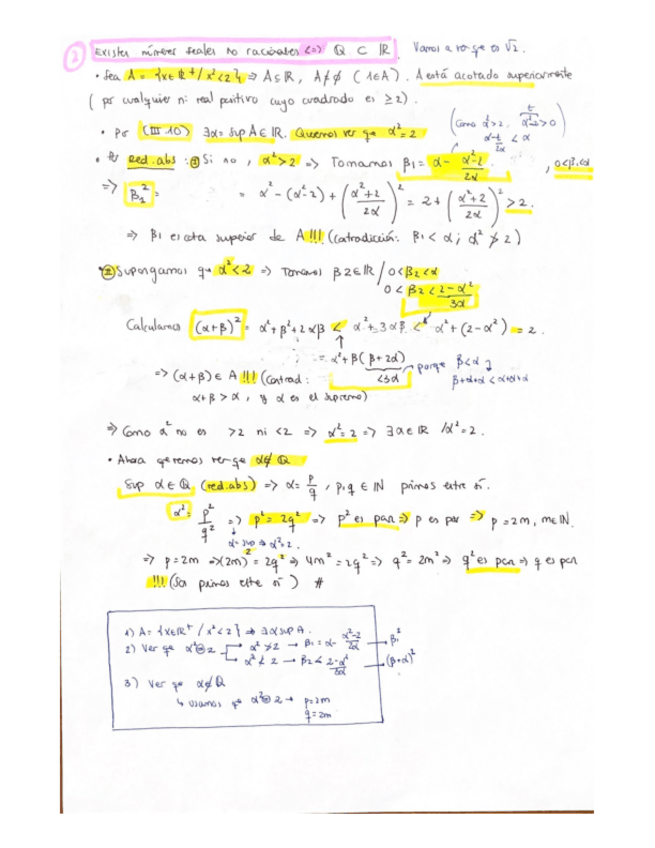 ② Existen números reales no racionales <=> Q ⊂ IR. Vamos a ver qe es √2.
• Sea A = {x∈IR⁺ / x²<2} => A⊆IR, A≠∅ (1∈A). A está acotado superiormente
( por cualquier nº real positivo cuyo cuadrado es ≥ 2).
(Como α²>2, α²-2>0
α - t/2α < α
• Por (III 10) ∃α = sup A ∈ IR. Queremos ver qe α²=2
• Por red. abs : ① Si no, α²>2 => Tomamos β1 = α - (α²-2)/2α , 0<β1<α
=> β1² = = α² - (α²-2) + ((α²+2)/2α)² = 2 + ((α²+2)/2α)² > 2.
=> β1 es cota superior de A !!! (Contradicción: β1 < α ; α² ≯ 2)
• ② Supongamos qe α²<2 => Tomamos β2∈IR / 0<β2<α
0 < β2 < (2-α²)/3α
Calculamos (α+β)² = α²+β²+2αβ < α²+3αβ < α²+(2-α²) = 2.
= α²+β(β+2α) porque β<α
<3α β+α+α < α+α+α
=> (α+β) ∈ A !!! (Contrad:
α+β > α, y α es el supremo)
=> Como α² no es >2 ni <2 => α²=2 => ∃α∈IR /α²=2.
• Ahora queremos ver qe α∉Q
Sup α∈Q (red.abs) => α = p/q , p,q ∈ IN primos entre sí.
α² = p²/q² => p² = 2q² => p² es par => p es par => p = 2m, m∈IN.
α = sup => α²=2.
=> p=2m =>(2m)² = 2q² => 4m² = 2q² => q² = 2m² => q² es par => q es par
!!! (Son primos entre sí) #
1) A = {x∈IR⁺ / x²<2} => ∃α sup A.
2) Ver qe α² = 2 → α² ≯ 2 → β1 = α - (α²-2)/2α → β1²
α² ≮ 2 → β2 < (2-α²)/3α → (β+α)²
3) Ver qe α∉Q
↳ usamos qe α² = 2 → p=2m
q=2m